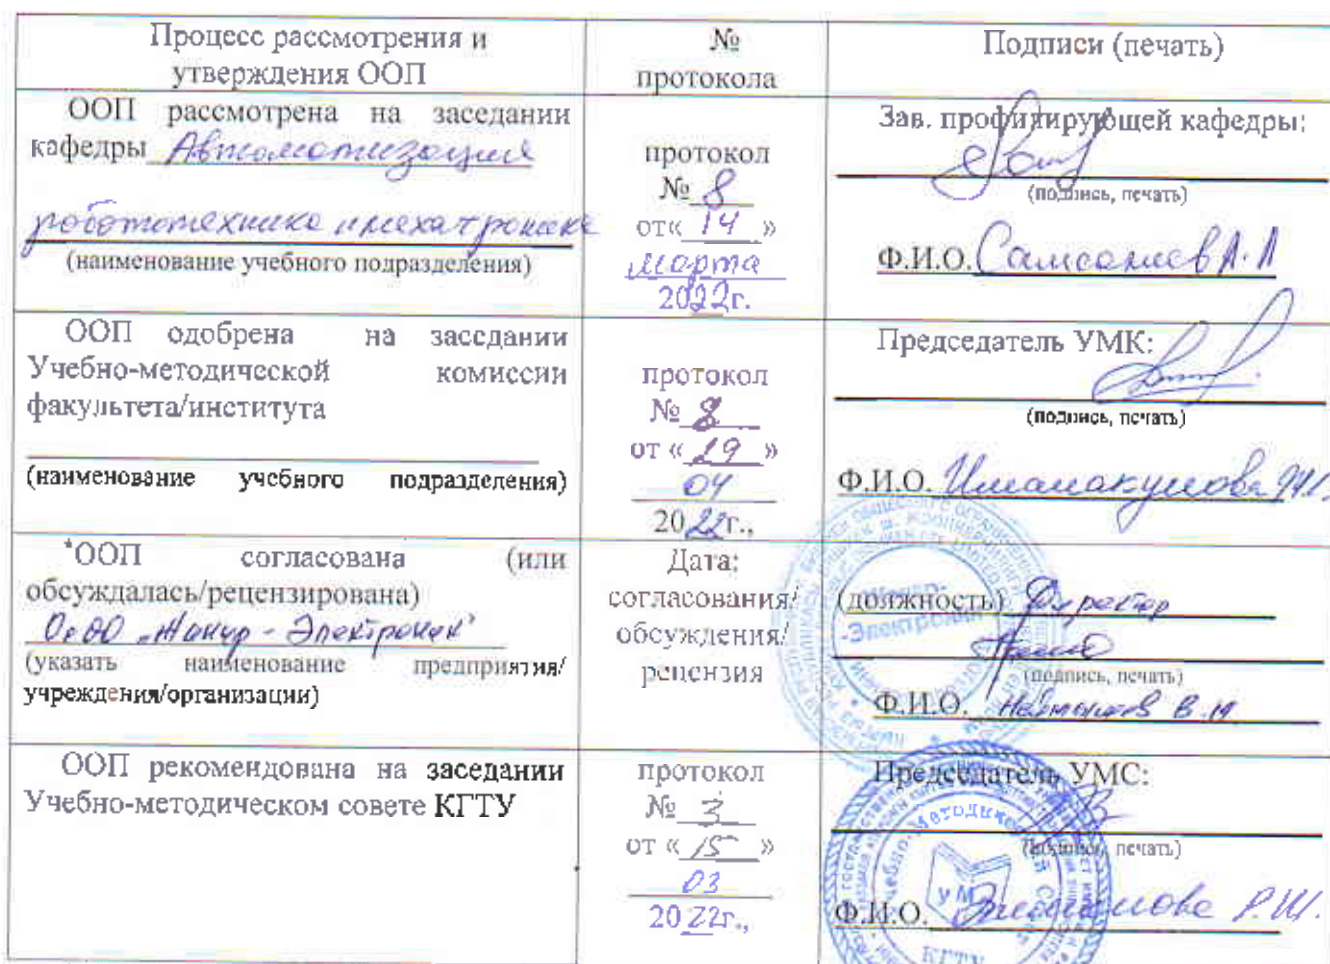 Процесс рассмотрения и
утверждения ООП
№
протокола
Подписи (печать)
ООП рассмотрена на заседании
кафедры Автоматизация
робототехника и мехатроника
(наименование учебного подразделения)
протокол
№ 8
от« 14 »
марта
2022г.
Зав. профилирующей кафедры:
(подпись, печать)
Ф.И.О.
ООП одобрена на заседании
Учебно-методической комиссии
факультета/института
(наименование учебного подразделения)
протокол
№ 8
от « 29 »
04
2022г.,
Председатель УМК:
(подпись, печать)
Ф.И.О.
*ООП согласована (или
обсуждалась/рецензирована)
ОсОО „Жанур - Электроник"
(указать наименование предприятия/
учреждения/организации)
Дата:
согласования/
обсуждения/
рецензия
(должность) Директор
(подпись, печать)
Ф.И.О. В.И
ООП рекомендована на заседании
Учебно-методическом совете КГТУ
протокол
№ 3
от « 15 »
03
2022г.,
Председатель УМС:
(подпись, печать)
Ф.И.О. Р.Ш.
УМ
КГТУ